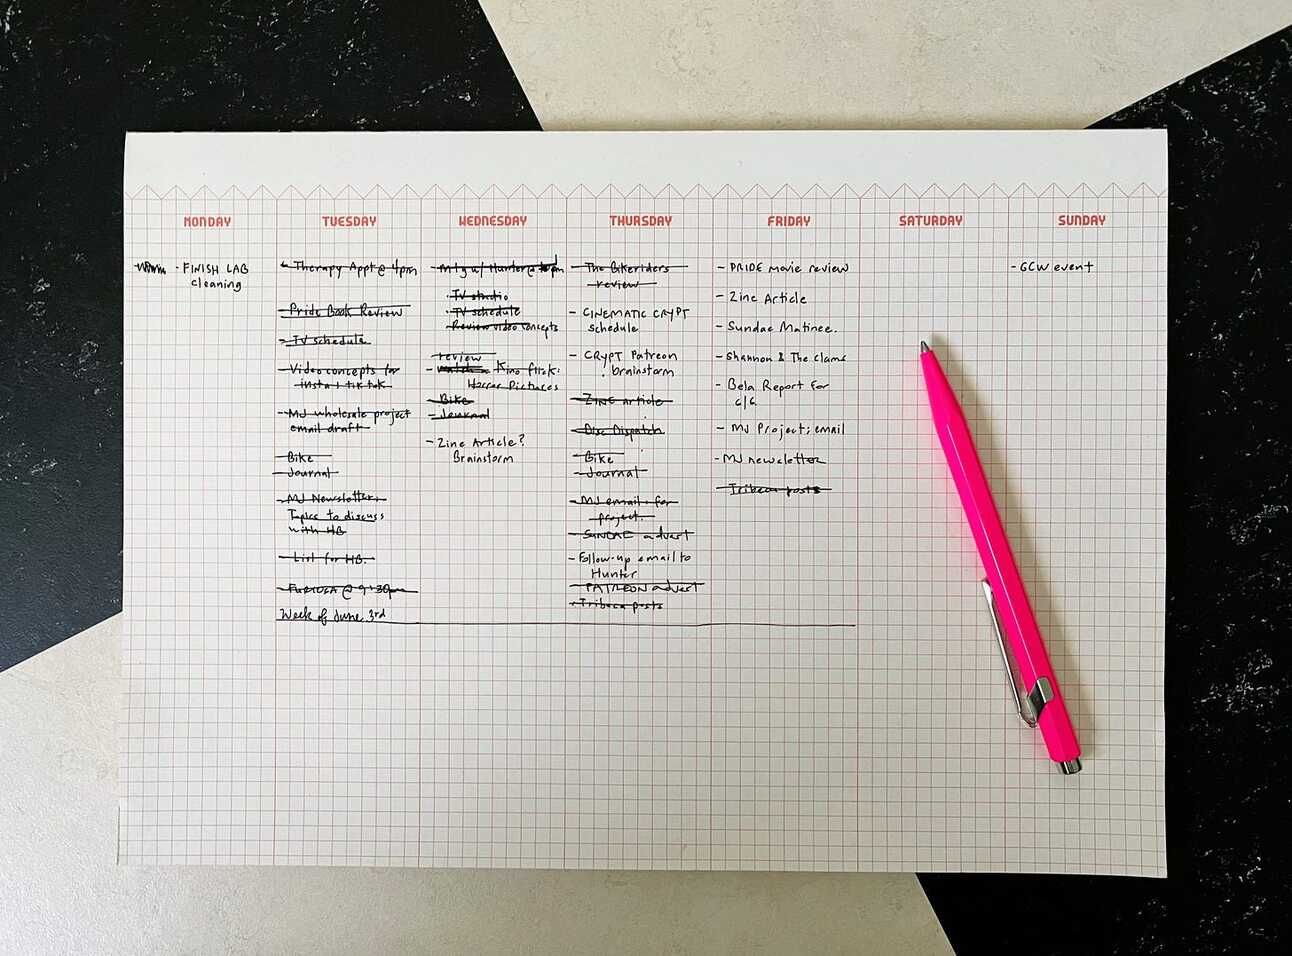 MONDAY
- FINISH LAB
cleaning
TUESDAY
- Therapy Appt @ 4pm
- Pride Book Review
- TV schedule
- Video concepts for
insta + tik tok
- MJ wholesale project
email draft
- Bike
- Journal
- MJ Newsletter:
Topics to discuss
with HB
- List for HB.
- FURIOSA @ 9:30pm
Week of June 3rd
WEDNESDAY
- Mtg w/ Hunter @
• TV studio
• TV schedule
Review video concepts
review
- Kino flick:
Horror Pictures
- Bike
- Journal
- Zine Article?
Brainstorm
THURSDAY
- The Bikeriders
review
- CINEMATIC CRYPT
schedule
- CRYPT Patreon
brainstorm
- ZINE article
- Disc Dispatch
- Bike
- Journal
- MJ email for
project.
- SUNDAE advert
- Follow-up email to
Hunter
- PATREON advert
- Tribeca posts
FRIDAY
- PRIDE movie review
- Zine Article
- Sundae Matinee.
- Shannon & The Clams
- Bela Report for
6/6.
- MJ Project; email
- MJ newsletter
- Tribeca posts
SATURDAY
SUNDAY
- GCW event